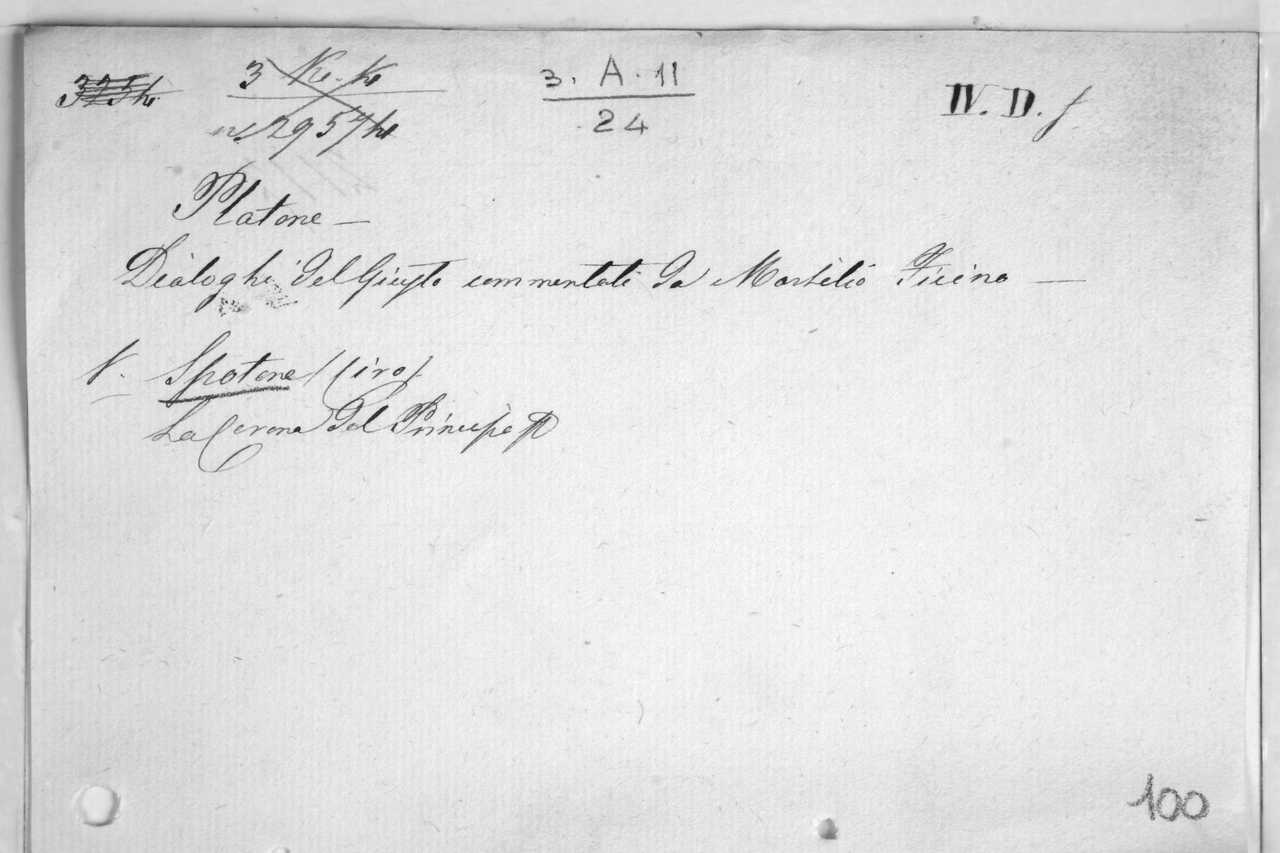 3. A. 11 IV. D. f.
24
Platone —
Dialoghi del Giusto commentati da Marsilio Ficino —
V. Spotone (Ciro)
La Corona del Principe
100